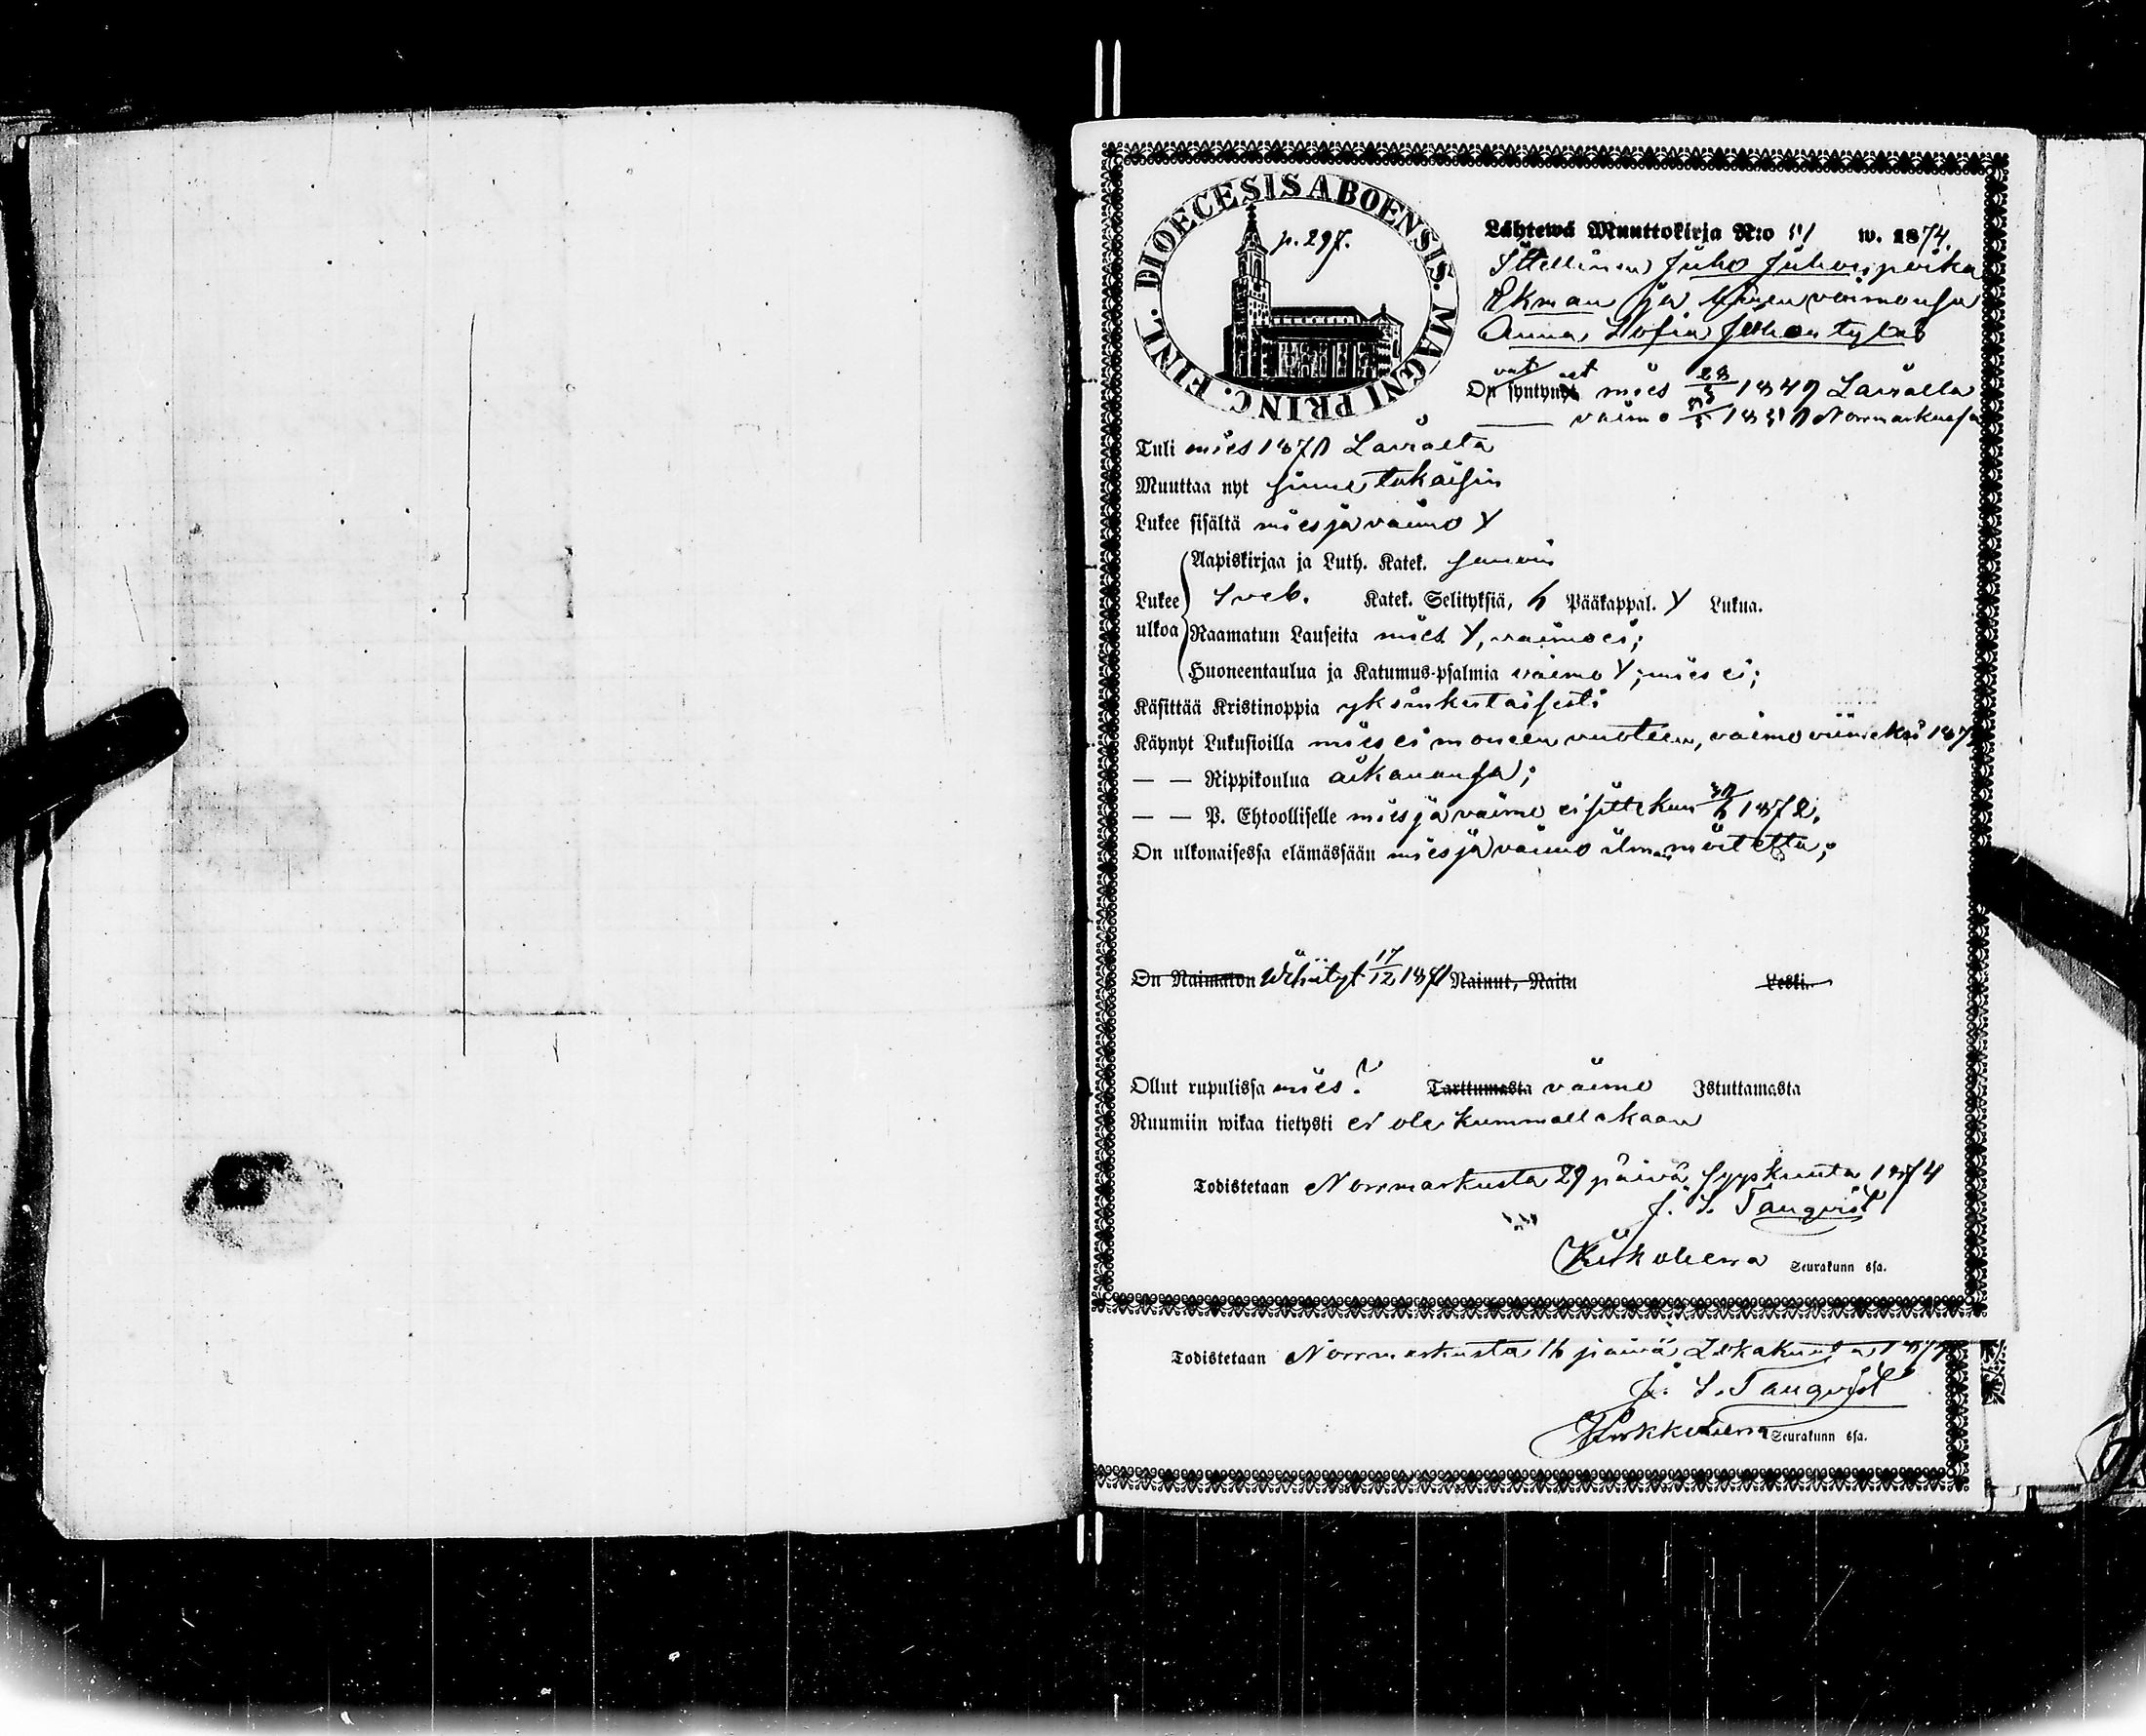 DIOECESIS ABOENSIS. MAGNI PRINC. FINL.
p. 297.
Lähtewä Muuttokirja N:o w. 1874.
Ittellinen Juho Juhonpoika
Ekman ja hänen vaimonsa
Anna Sofia Juhontytär
vat eet
On syntynyt mies 1849 Lavialla
vaimo Norrmarkussa
Tuli mies 187 Lavialta
Muuttaa nyt sinne takaisin
Lukee sisältä mies ja vaimo Y
Aapiskirjaa ja Luth. Katek. samoin
Lukee ulkoa Sveb. Katek. Selityksiä, Pääkappal. Y Lukua.
Raamatun Lauseita mies Y, vaimo ei;
Huoneentaulua ja Katumus-psalmia vaimo Y; mies ei;
Käsittää Kristinoppia yksinkertaisesti
Käynyt Lukusioilla mies ei moneen vuoteen, vaimo viimeksi 187
— — Rippikoulua aikanansa;
— — P. Ehtoolliselle mies ja vaimo ei sitte kun 1872.
On ulkonaisessa elämässään mies ja vaimo ilman moitetta;
On Naimaton Wihityt 17/12 1871 Nainut, Naitu Leski.
Ollut rupulissa mies? Tarttumasta vaimo Istuttamasta
Ruumiin wikaa tietysti ei ole kummallakaan
Todistetaan Norrmarkusta 29 päivä Syyskuuta 1874
J. S. Tanqvist
Kirkoherra Seurakunn ssa.
Todistetaan Norrmarkusta 16 päivä Lokakuuta 187
J. S. Tanqvist
Kirkkoherra Seurakunn ssa.